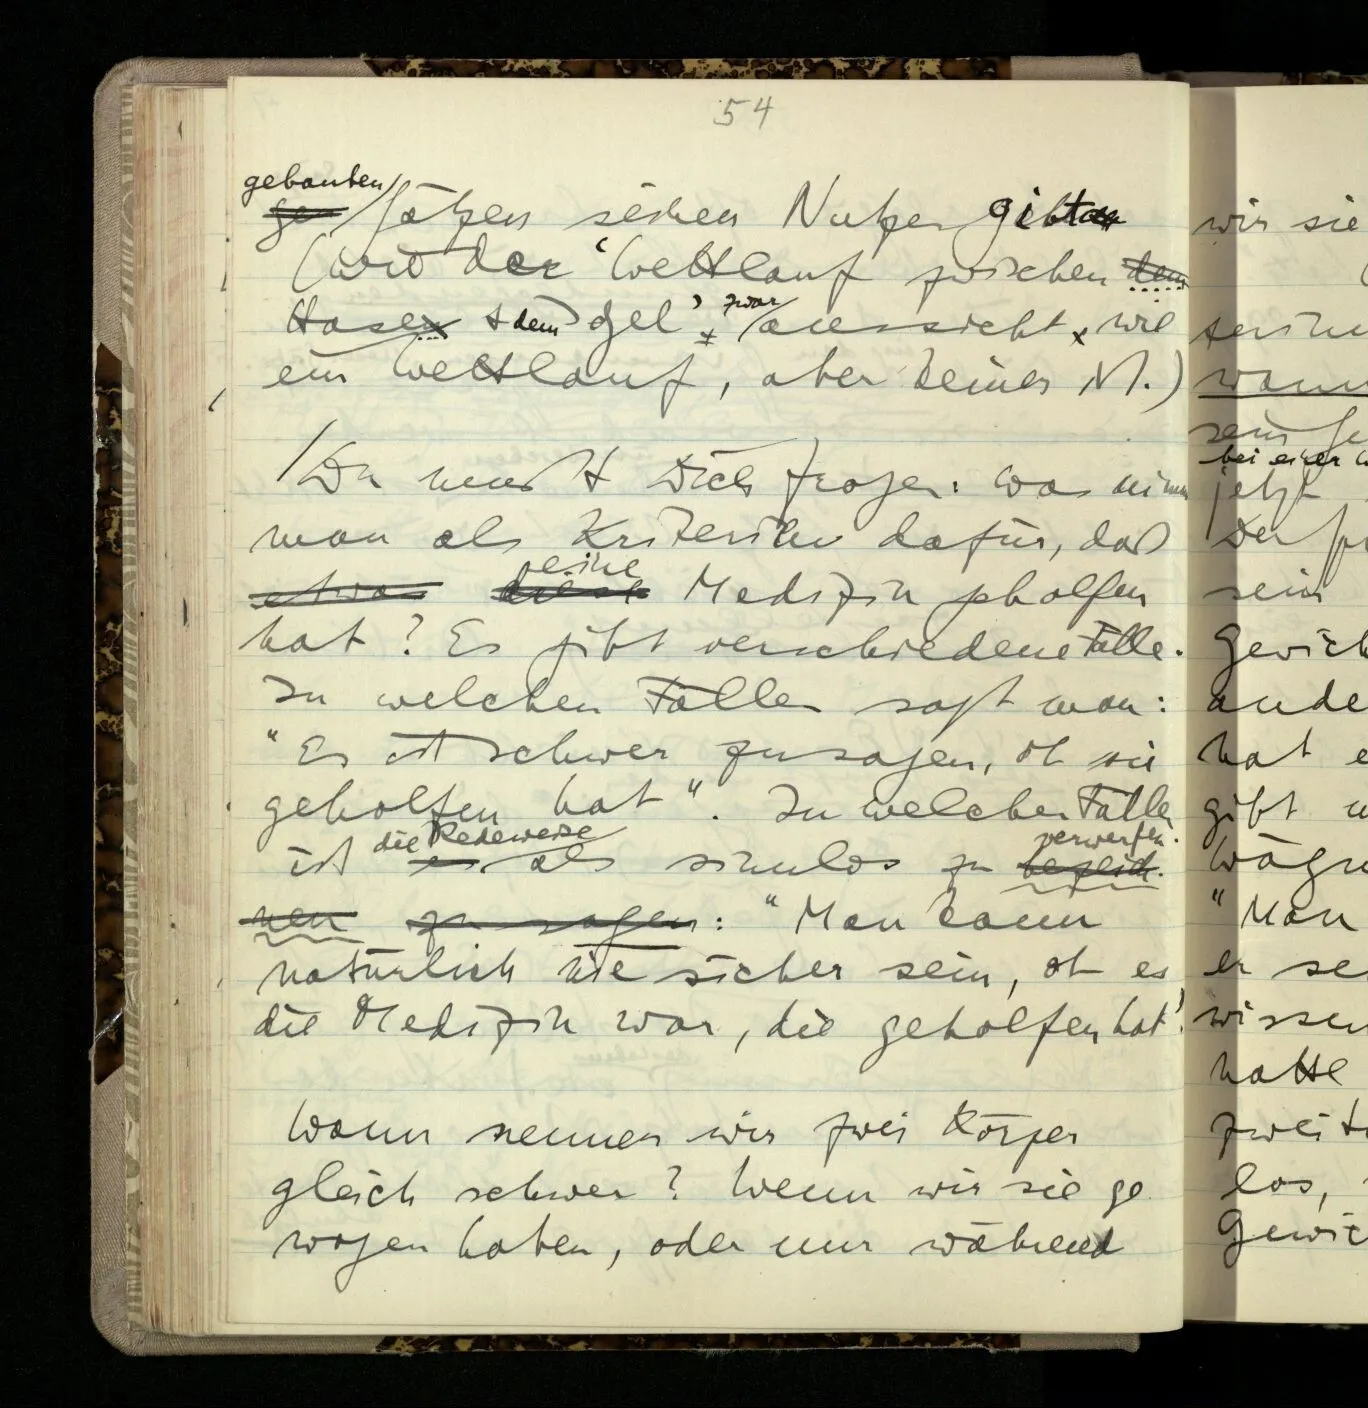 54
gebauten
ge Sätzen seinen Nutzen gibt
(wie der 'Wettlauf zwischen dem
Hasen + dem Igel' zwar aussieht, wie
ein Wettlauf, aber keiner ist.)
/Du mußt Dich fragen: was nimmt
man als Kriterium dafür, daß
eine
etwas diese Medizin geholfen
hat? Es gibt verschiedene Fälle.
In welchen Fällen sagt man:
"Es ist schwer zu sagen, ob sie
geholfen hat". In welchen Fällen
die Redeweise verwerfen.
ist es als sinnlos zu bezeich
nen zu sagen: "Man kann
natürlich nie sicher sein, ob es
die Medizin war, die geholfen hat"
Wann nennen wir zwei Körper
gleich schwer? Wenn wir sie ge
wogen haben, oder nur während
wir sie
sein
bei einer
jetzt
Der
sein
Gewich
ande
hat e
gibt
Wägu
"Man
er se
wissen
hatte
zweite
los,
Gewic